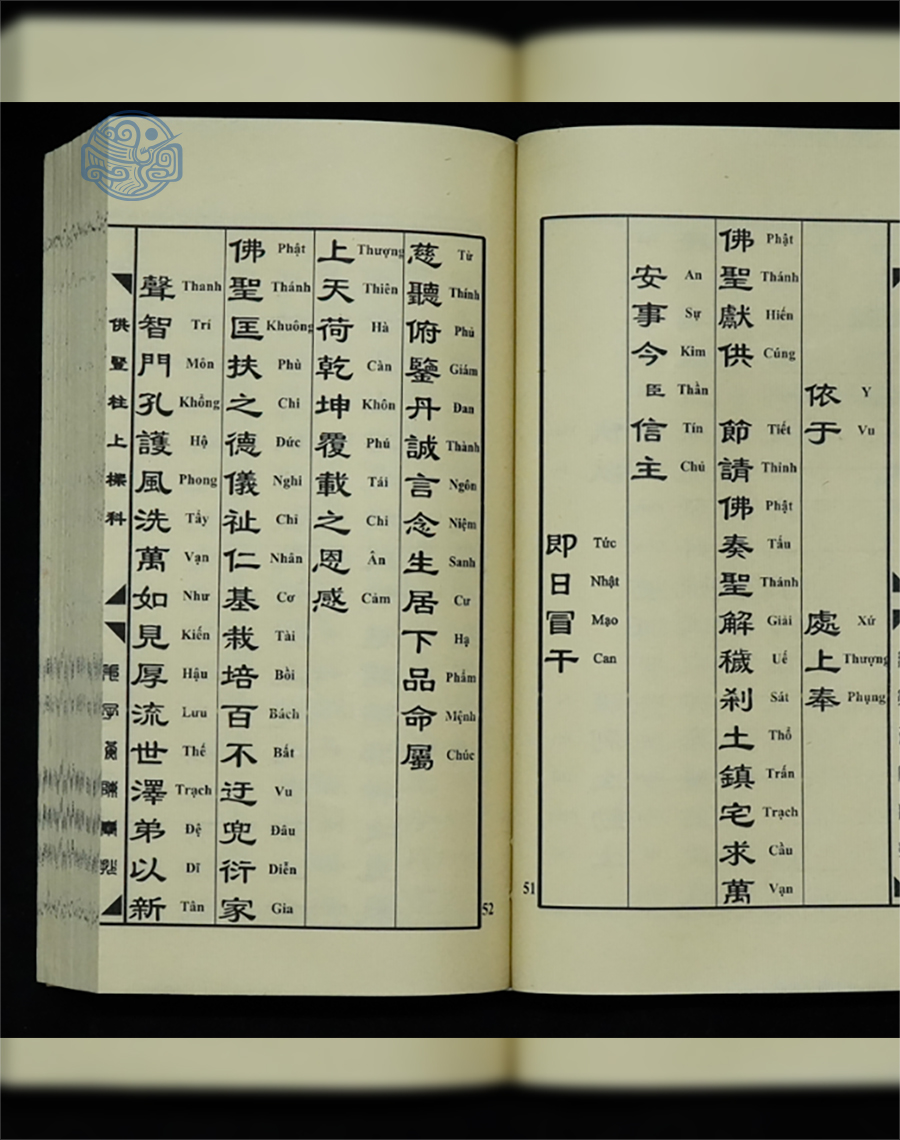 依于 處上奉
Y Vu Xứ Thượng Phụng
佛聖獻供 節請佛奏聖解穢剎土鎮宅求萬
Phật Thánh Hiến Cúng Tiết Thỉnh Phật Tấu Thánh Giải Uế Sát Thổ Trấn Trạch Cầu Vạn
安事今臣信主
An Sự Kim Thần Tín Chủ
即日冒干
Tức Nhật Mạo Can
51
慈聽俯鑒丹誠言念生居下品命屬
Từ Thính Phủ Giám Đan Thành Ngôn Niệm Sanh Cư Hạ Phẩm Mệnh Chúc
上天荷乾坤覆載之恩感
Thượng Thiên Hà Càn Khôn Phú Tái Chi Ân Cảm
佛聖匡扶之德儀祉仁基栽培百不迂兜衍家
Phật Thánh Khuông Phù Chi Đức Nghi Chỉ Nhân Cơ Tài Bồi Bách Bất Vu Đâu Diễn Gia
聲智門孔護風洗萬如見厚流世澤弟以新
Thanh Trí Môn Khổng Hộ Phong Tẩy Vạn Như Kiến Hậu Lưu Thế Trạch Đệ Dĩ Tân
供豎柱上樑科
52